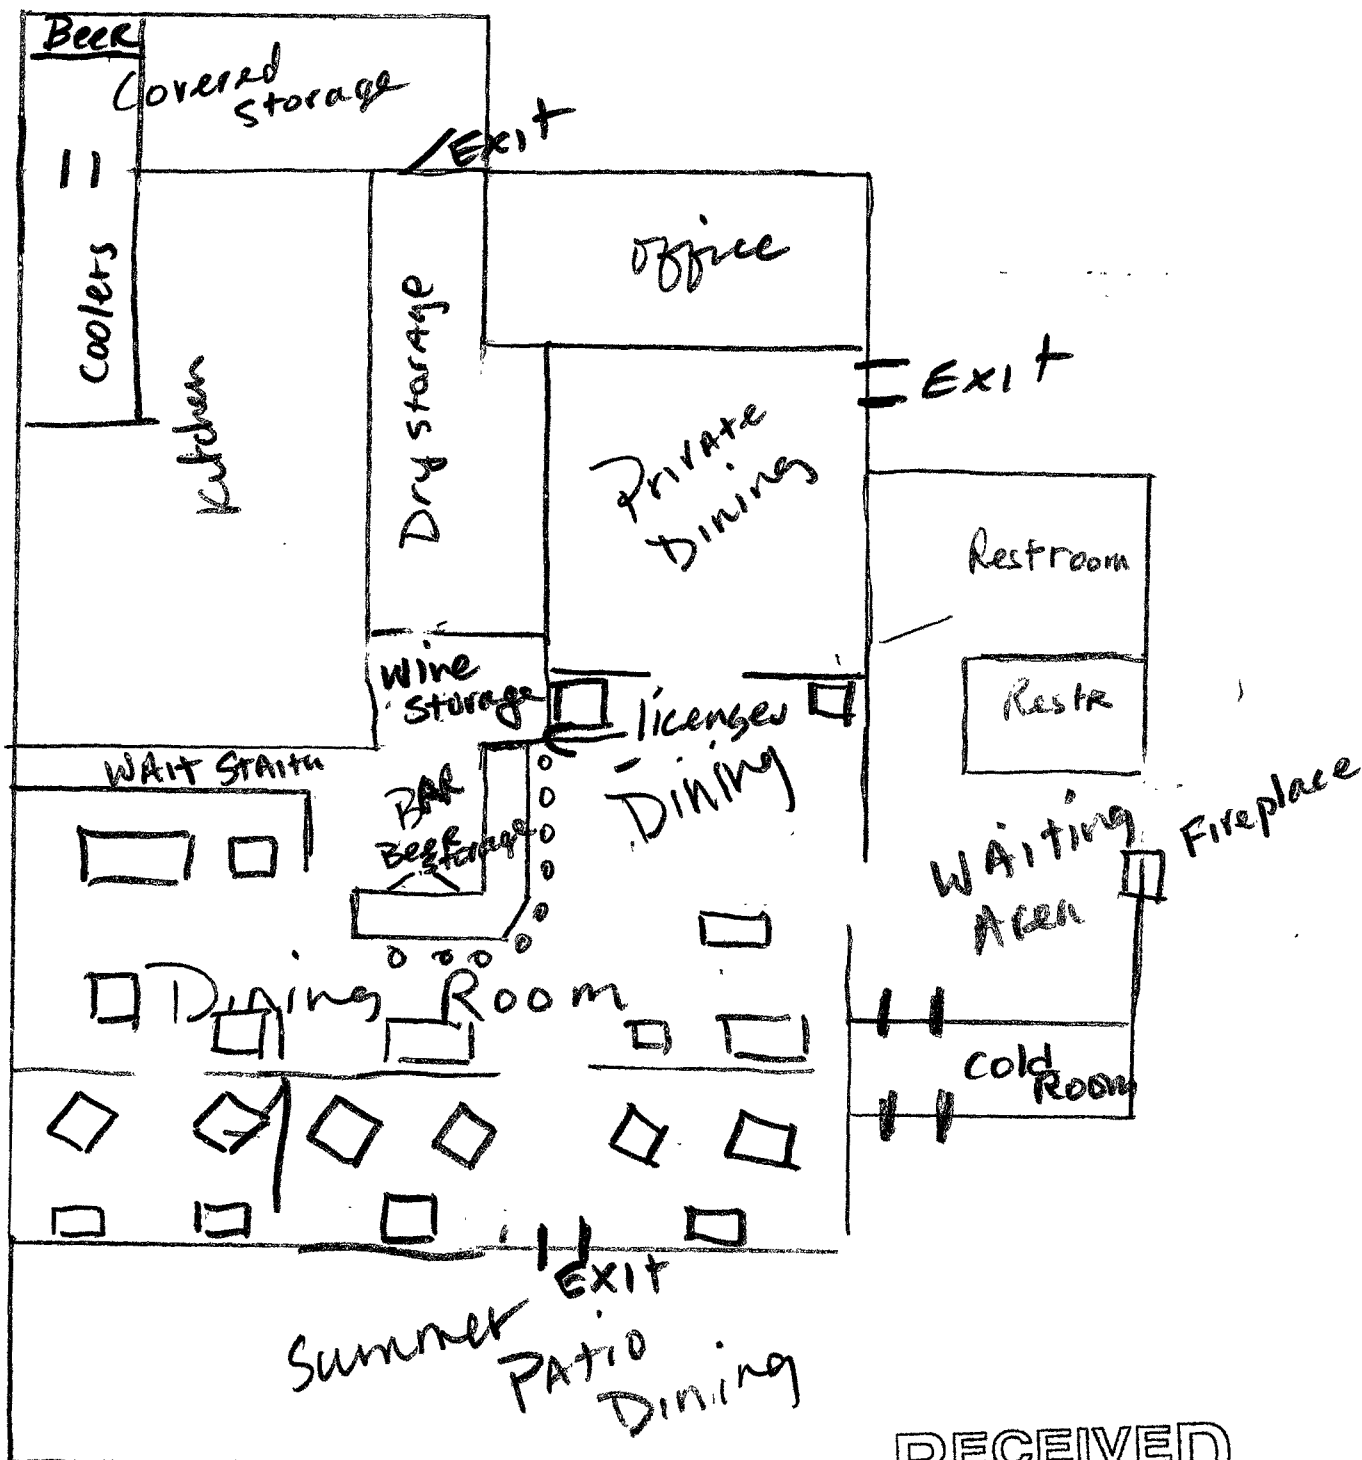 Beer
Covered
Storage
Exit
Coolers
Kitchen
Dry Storage
Office
Exit
Private
Dining
Restroom
Wine
Storage
licenses
Dining
Restr
Wait Statn
Bar
Beer
Storage
Waiting
Area
Fireplace
Dining Room
Cold
Room
Exit
Summer
Patio
Dining
RECEIVED